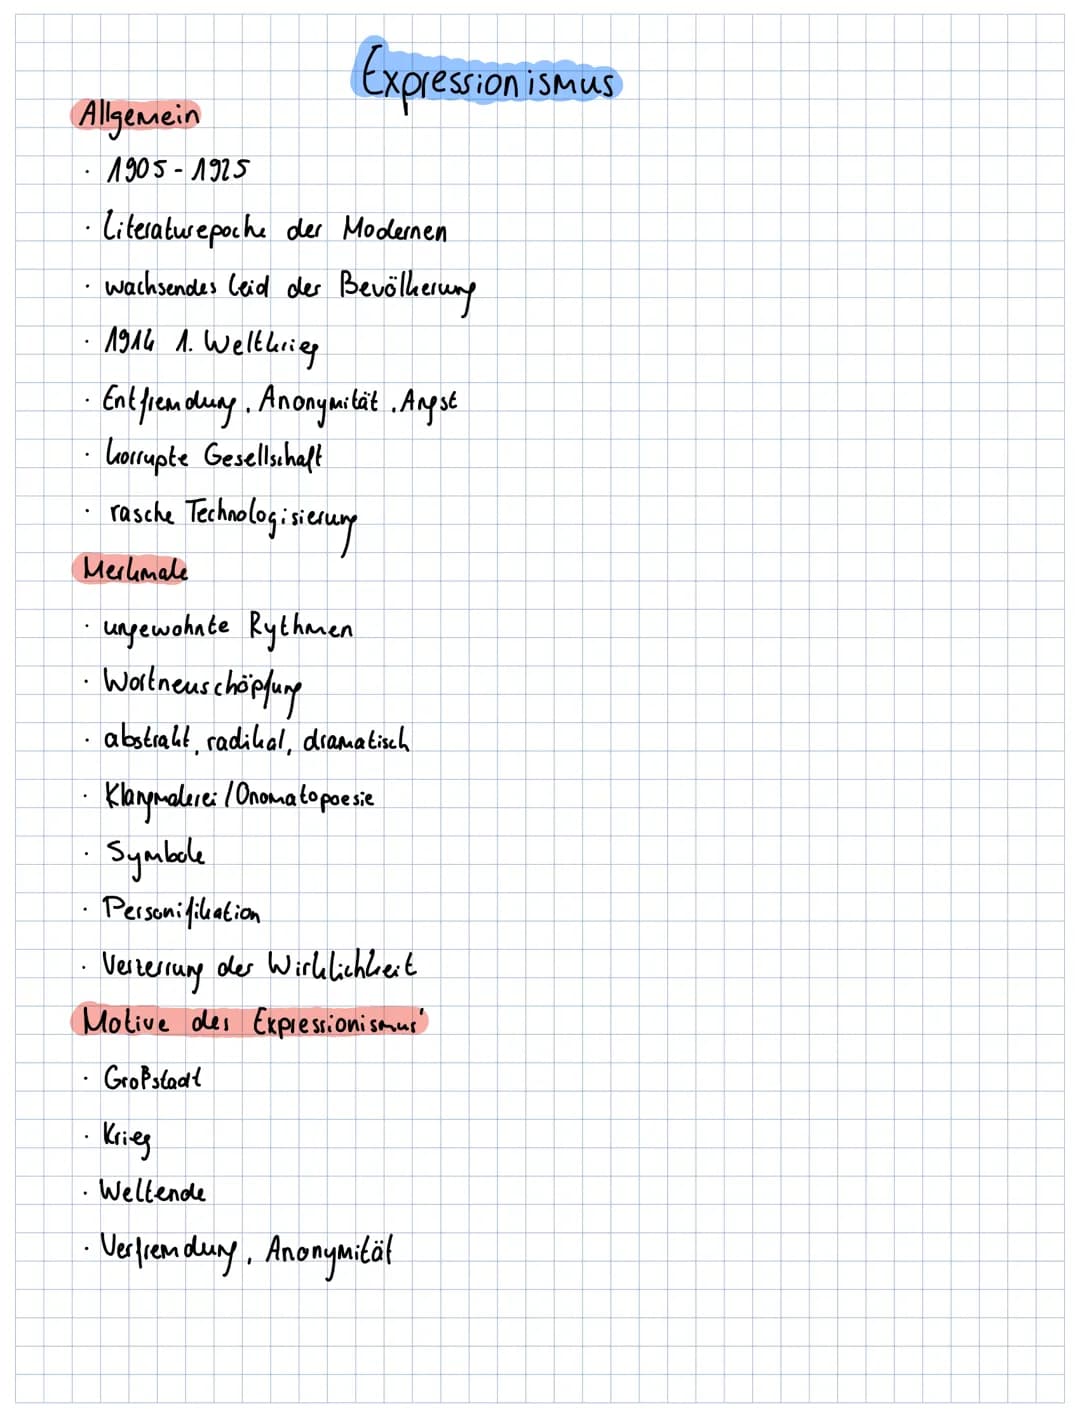 Expressionismus
Allgemein
· 1905 - 1925
· Literaturepoche der Modernen
· wachsendes Leid der Bevölkerung
· 1914 1. Weltkrieg
· Entfremdung, Anonymität, Angst
· korrupte Gesellschaft
· rasche Technologisierung
Merkmale
· ungewohnte Rythmen
· Wortneuschöpfung
· abstrakt, radikal, dramatisch
· Klangmalerei / Onomatopoesie
· Symbole
· Personifikation
· Verzerrung der Wirklichkeit
Motive des Expressionismus'
· Großstadt
· Krieg
· Weltende
· Verfremdung, Anonymität